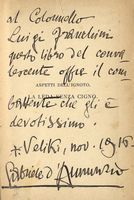 al Colonnello
Luigi
questo libro del conva
lescente offre il com
ASPETTI DELL'IGNOTO.
battente che gli è
LA LEDA SENZA CIGNO.
devotissimo.
Veliki, nov. 1916
Gabriele d'Annunzio